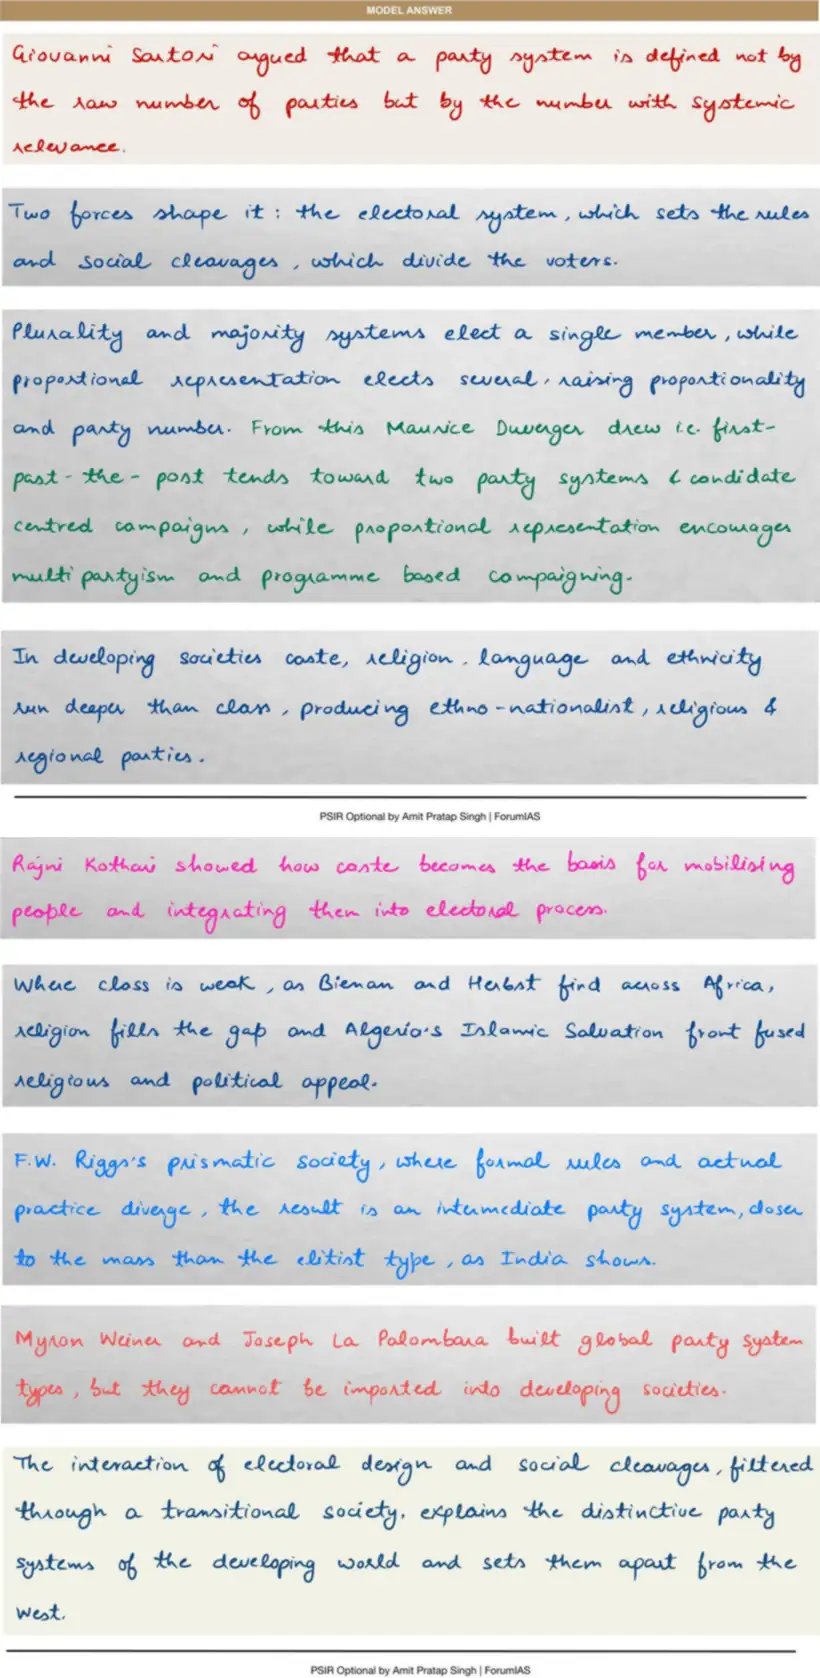 MODEL ANSWER
Giovanni Sartori argued that a party system is defined not by
the raw number of parties but by the number with systemic
relevance.
Two forces shape it: the electoral system, which sets the rules
and social cleavages, which divide the voters.
Plurality and majority systems elect a single member, while
proportional representation elects several, raising proportionality
and party number. From this Maurice Duverger drew i.e. first-
past-the-post tends toward two party systems & candidate
centred campaigns, while proportional representation encourages
multi partyism and programme based campaigning.
In developing societies caste, religion, language and ethnicity
run deeper than class, producing ethno-nationalist, religious &
regional parties.
PSIR Optional by Amit Pratap Singh | ForumIAS
Rajni Kothari showed how caste becomes the basis for mobilising
people and integrating them into electoral process.
Where class is weak, as Bienan and Herbst find across Africa,
religion fills the gap and Algeria's Islamic Salvation front fused
religious and political appeal.
F.W. Riggs's prismatic society, where formal rules and actual
practice diverge, the result is an intermediate party system, closer
to the mass than the elitist type, as India shows.
Myron Weiner and Joseph La Palombara built global party system
types, but they cannot be imported into developing societies.
The interaction of electoral design and social cleavages, filtered
through a transitional society, explains the distinctive party
systems of the developing world and sets them apart from the
west.
PSIR Optional by Amit Pratap Singh | ForumIAS